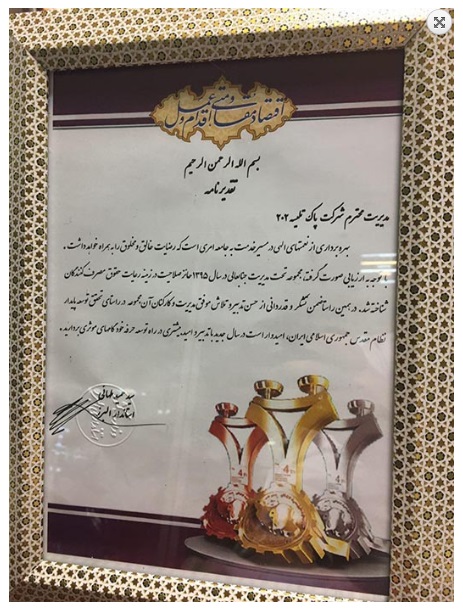 اقتصاد مقاومتی اقدام و عمل
بسم الله الرحمن الرحیم
تقدیرنامه
مدیریت محترم شرکت پاک تلیسه ۲۰۲
بهره برداری از نعمتهای الهی در مسیر خدمت به جامعه امری است که رضایت خالق و مخلوق را به همراه خواهد داشت .
با توجه به ارزیابی صورت گرفته، مجموعه تحت مدیریت جنابعالی در سال ۱۳۹۵ حائز صلاحیت در زمینه رعایت حقوق مصرف کنندگان
شناخته شده . در همین راستا ضمن تشکر و قدردانی از حسن تدبیر و تلاش موفق مدیریت و کارکنان آن مجموعه در راستای تحقق توسعه پایدار
نظام مقدس جمهوری اسلامی ایران، امیدوار است در سال جدید با تدبیر و امید بیشتری در راه توسعه حرفه خود گامهای موثری بردارید.
سید حمید طهائی
استاندار البرز
4
4